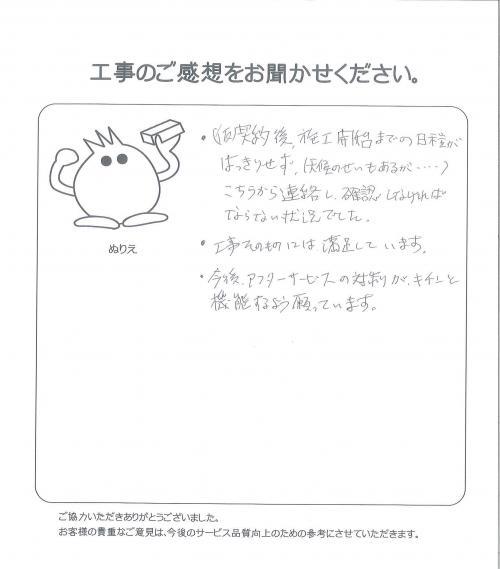 工事のご感想をお聞かせください。
・仮契約後、施工開始までの日程が
はっきりせず、(天候のせいもあるが‥‥‥)
こちらから連絡し、確認しなければ
ならない状況でした。
・工事そのものには満足しています。
・今後、アフターサービスの体制が、キチンと
機能するよう願っています。
ぬりえ
ご協力いただきありがとうございました。
お客様の貴重なご意見は、今後のサービス品質向上のための参考にさせていただきます。